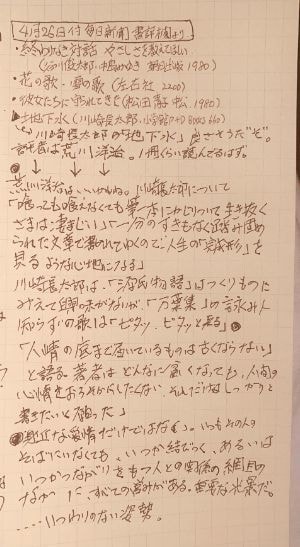 4月26日付 毎日新聞 書評欄より
・終わりなき対話 やさしさを教えてほしい
(谷川俊太郎、中島みゆき 朝日出版 1980)
・花の歌・雪の歌 (左右社 2200)
・彼女たちに守られてきた (松田青子 中公 1980)
・地下水 (川崎長太郎、小学館P+D BOOKS 660)
“川崎長太郎の「地下水」良さそうだ”ぞ。
評者は荒川洋治。1冊くらい読んでるはず。
↓ ↓ ↓
荒川洋治はいいかもね。川崎長太郎について
「喰っても喰えなくても筆一本にかじりついて生き抜く
さまは凄まじい」「一分のすきもなく踏み固め
られた文章で書かれていくので「人生の完成形」を
見るような心地になる」
川崎長太郎は、「源氏物語」はつくりものに
みえて興味がないが、「万葉集」の詠み人
知らずの歌は「ピタッ、ピタッと来る」
「人情の底まで届いているものは古くならない」
と語る。著者はどんなに貧しくなっても、人間の
心情をおろそかにしたくない。それだけはしっかりと
書きたいと願った」
な愛情だけではなく。いつもその人の
そばにいなくても、いつか結びつく、あるいは
いつかつながりをもつ人との関係の網目の
なかに、すべての営みがある。重要な光景だ。
.....いつわりのない姿勢。